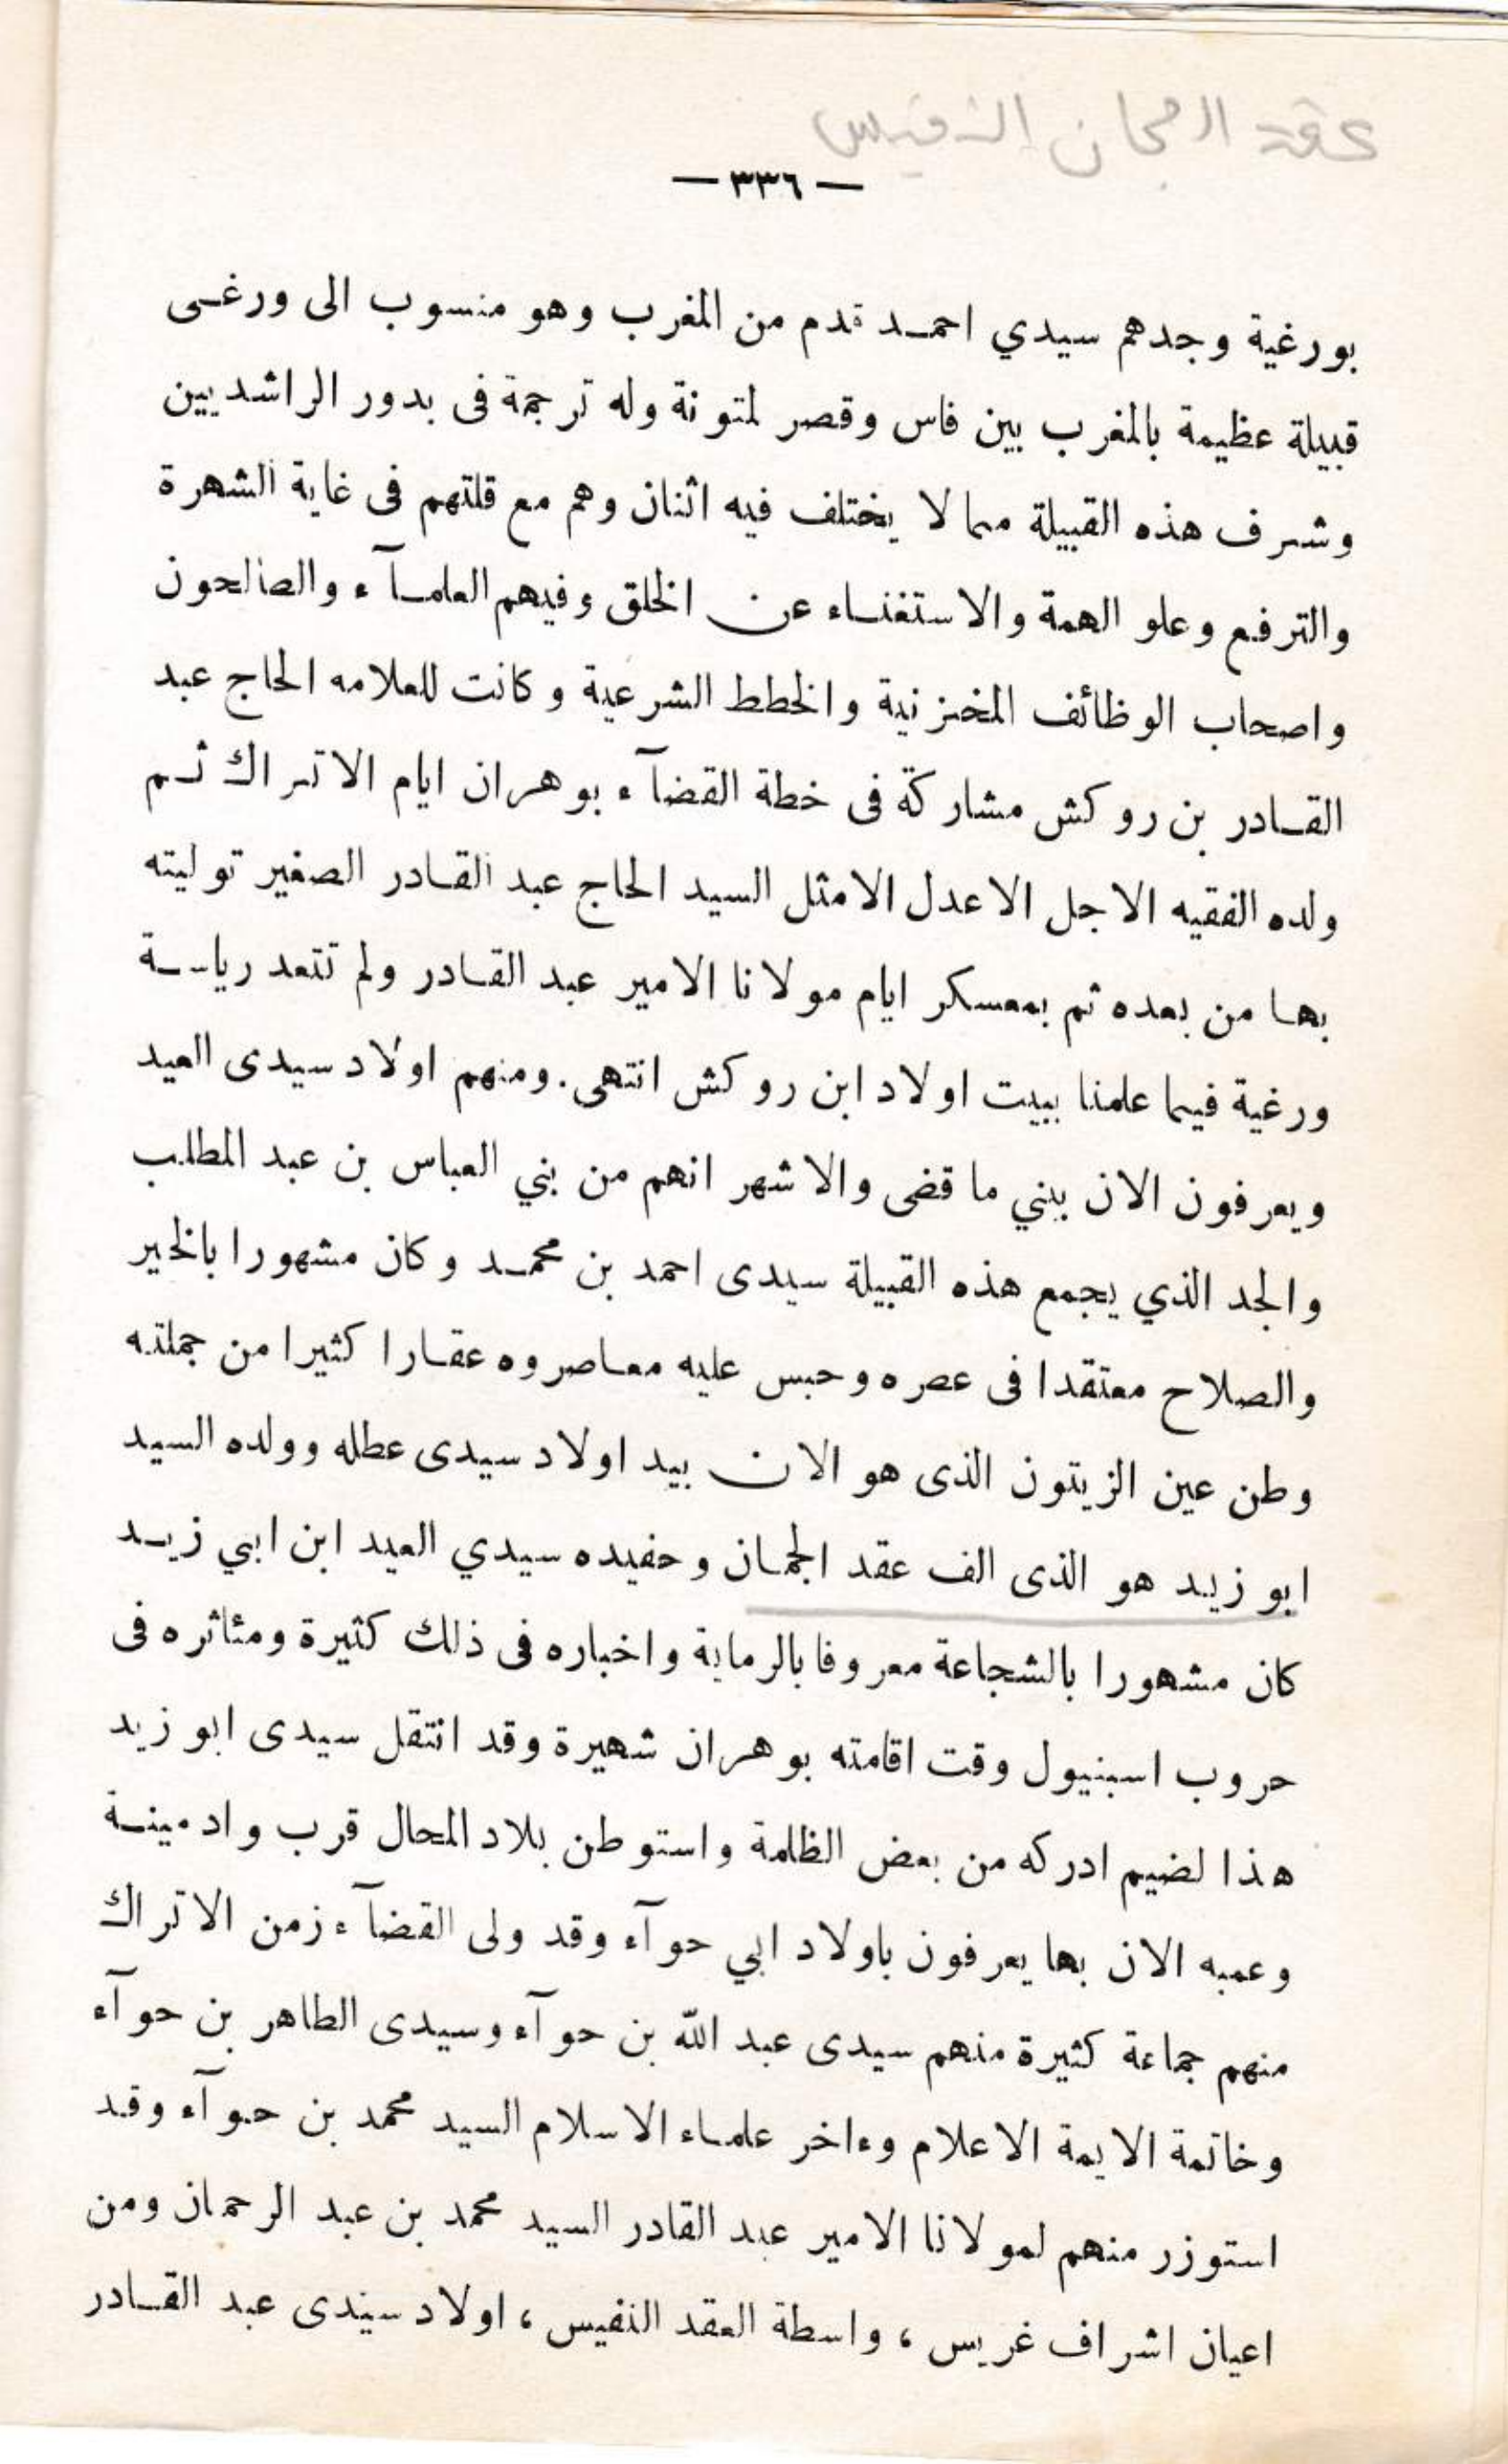 عقد الجمان النفيس
— ٣٣٦ —
بورغية وجدهم سيدي احمد قدم من المغرب وهو منسوب الى ورغى
قبيلة عظيمة بالمغرب بين فاس وقصر لمتونة وله ترجمة فى بدور الراشديين
وشرف هذه القبيلة مما لا يختلف فيه اثنان وهم مع قلتهم فى غاية الشهرة
والترفع وعلو الهمة والاستغناء عن الخلق وفيهم العلمآء والصالحون
واصحاب الوظائف المخزنية والخطط الشرعية وكانت للعلامه الحاج عبد
القادر بن روكش مشاركة فى خطة القضآء بوهران ايام الاتراك ثم
ولده الفقيه الاجل الاعدل الامثل السيد الحاج عبد القادر الصغير توليته
بها من بعده ثم بمعسكر ايام مولانا الامير عبد القادر ولم تتعد رياسة
ورغية فيما علمنا ببيت اولاد ابن روكش انتهى. ومنهم اولاد سيدى العيد
ويعرفون الان ببني ما قضى والاشهر انهم من بني العباس بن عبد المطلب
والجد الذي يجمع هذه القبيلة سيدى احمد بن محمد وكان مشهورا بالخير
والصلاح معتقدا فى عصره وحبس عليه معاصروه عقارا كثيرا من جملته
وطن عين الزيتون الذى هو الان بيد اولاد سيدى عطله وولده السيد
ابو زيد هو الذى الف عقد الجمان وحفيده سيدي العيد ابن ابي زيد
كان مشهورا بالشجاعة معروفا بالرماية واخباره فى ذلك كثيرة ومئاثره فى
حروب اسبنيول وقت اقامته بوهران شهيرة وقد انتقل سيدى ابو زيد
هذا لضيم ادركه من بعض الظلمة واستوطن بلاد المحال قرب واد مينة
وعمبه الان بها يعرفون باولاد ابي حوآء وقد ولى القضآء زمن الاتراك
منهم جماعة كثيرة منهم سيدى عبد الله بن حوآء وسيدى الطاهر بن حوآء
وخاتمة الايمة الاعلام وءاخر علماء الاسلام السيد محمد بن حوآء وقد
استوزر منهم لمولانا الامير عبد القادر السيد محمد بن عبد الرحمان ومن
اعيان اشراف غريس ، واسطة العقد النفيس ، اولاد سيدى عبد القادر